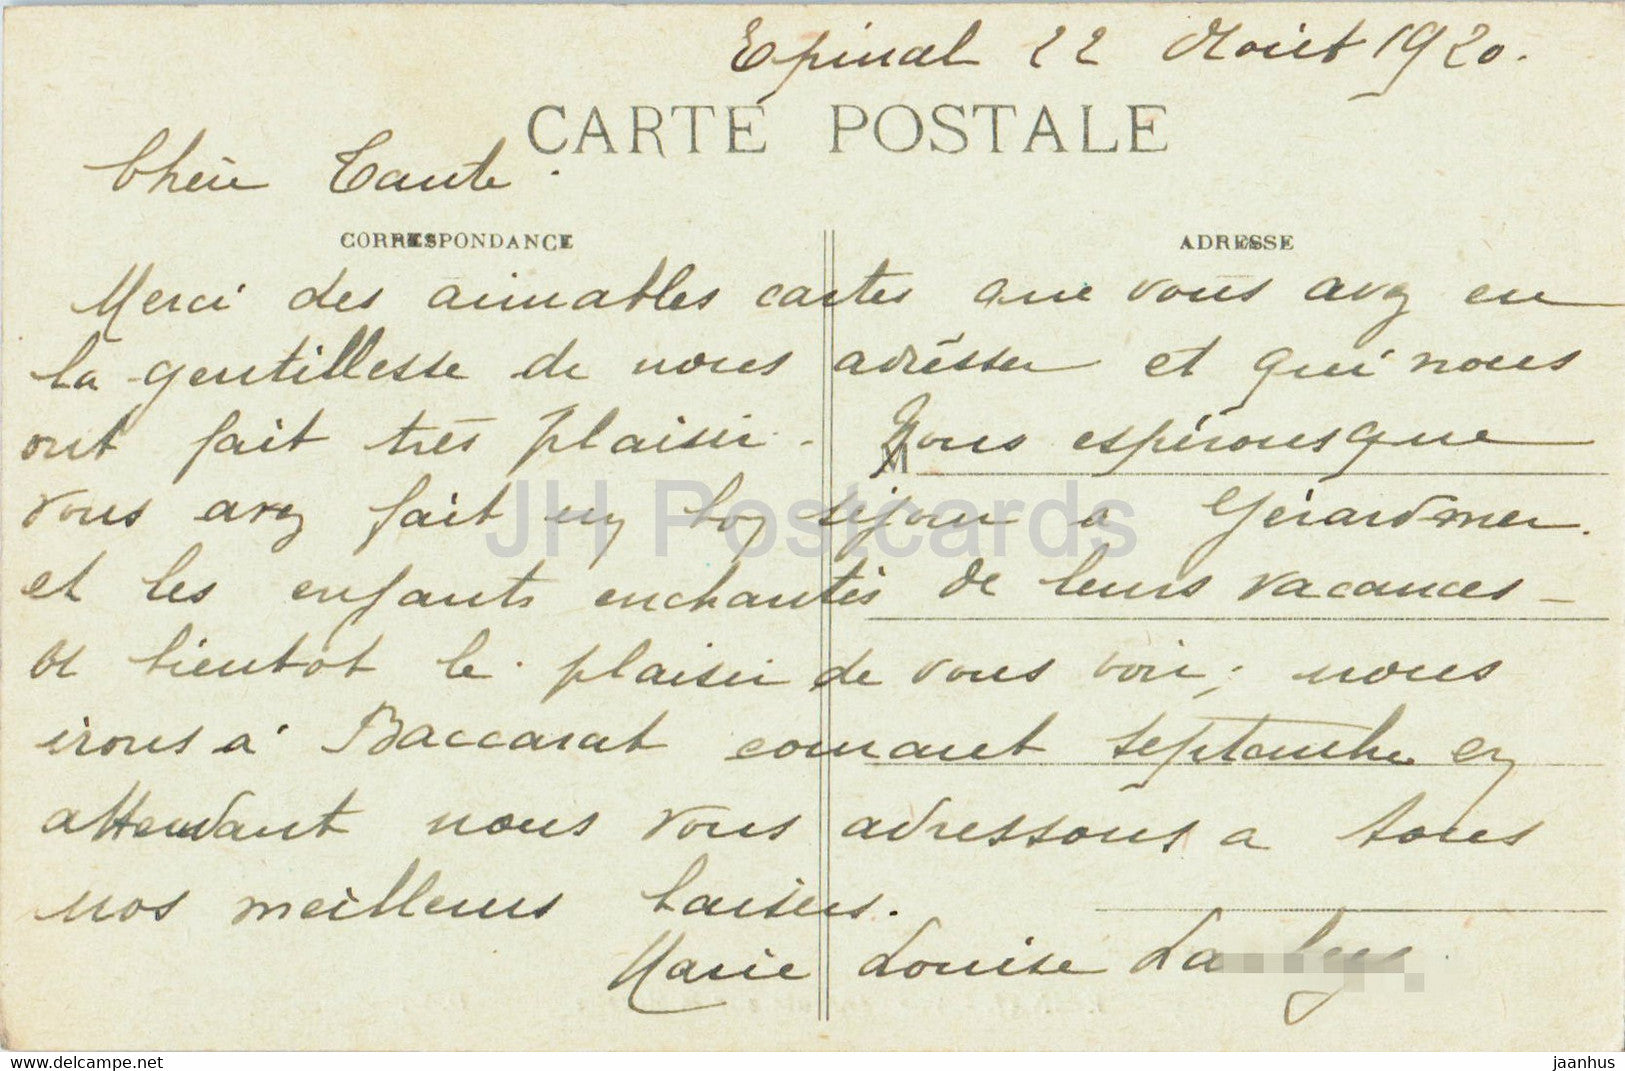 Epinal 22 Août 1920.
CARTE POSTALE
Chère Tante.
CORRESPONDANCE
ADRESSE
Merci des aimables cartes que vous avez eu
la gentillesse de nous adresser et qui nous
ont fait très plaisir. Nous espérons que
M
vous avez fait un bon séjour a Gérardmer.
JH Postcards
et les enfants enchantés de leurs vacances -
A bientot le plaisir de vous voir; nous
irons à Baccarat courant septembre en
attendant nous vous adressons a tous
nos meilleurs baisers.
Marie Louise
www.delcampe.net
jaanhus